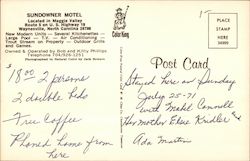 SUNDOWNER MOTEL
Located in Maggie Valley
Route 5 on U. S. Highway 19
Waynesville, North Carolina 28786
New Modern Units — Several Kitchenettes —
Large Pool — T.V. — Air Conditioning —
Trout Stream on Property — Outdoor Grills
and Games
Owned & Operated by Bob and Kitty Phillips
Telephone 704/926-1251
Photographed in Natural Color by
$18.00 2 persons
2 double beds
Free Coffee
Phoned home from
here
Color King
Post Card
PLACE
STAMP
HERE
Stayed here on Sunday
July 25-71
with Mabel Connell
Her mother Elsie
Ada Martin